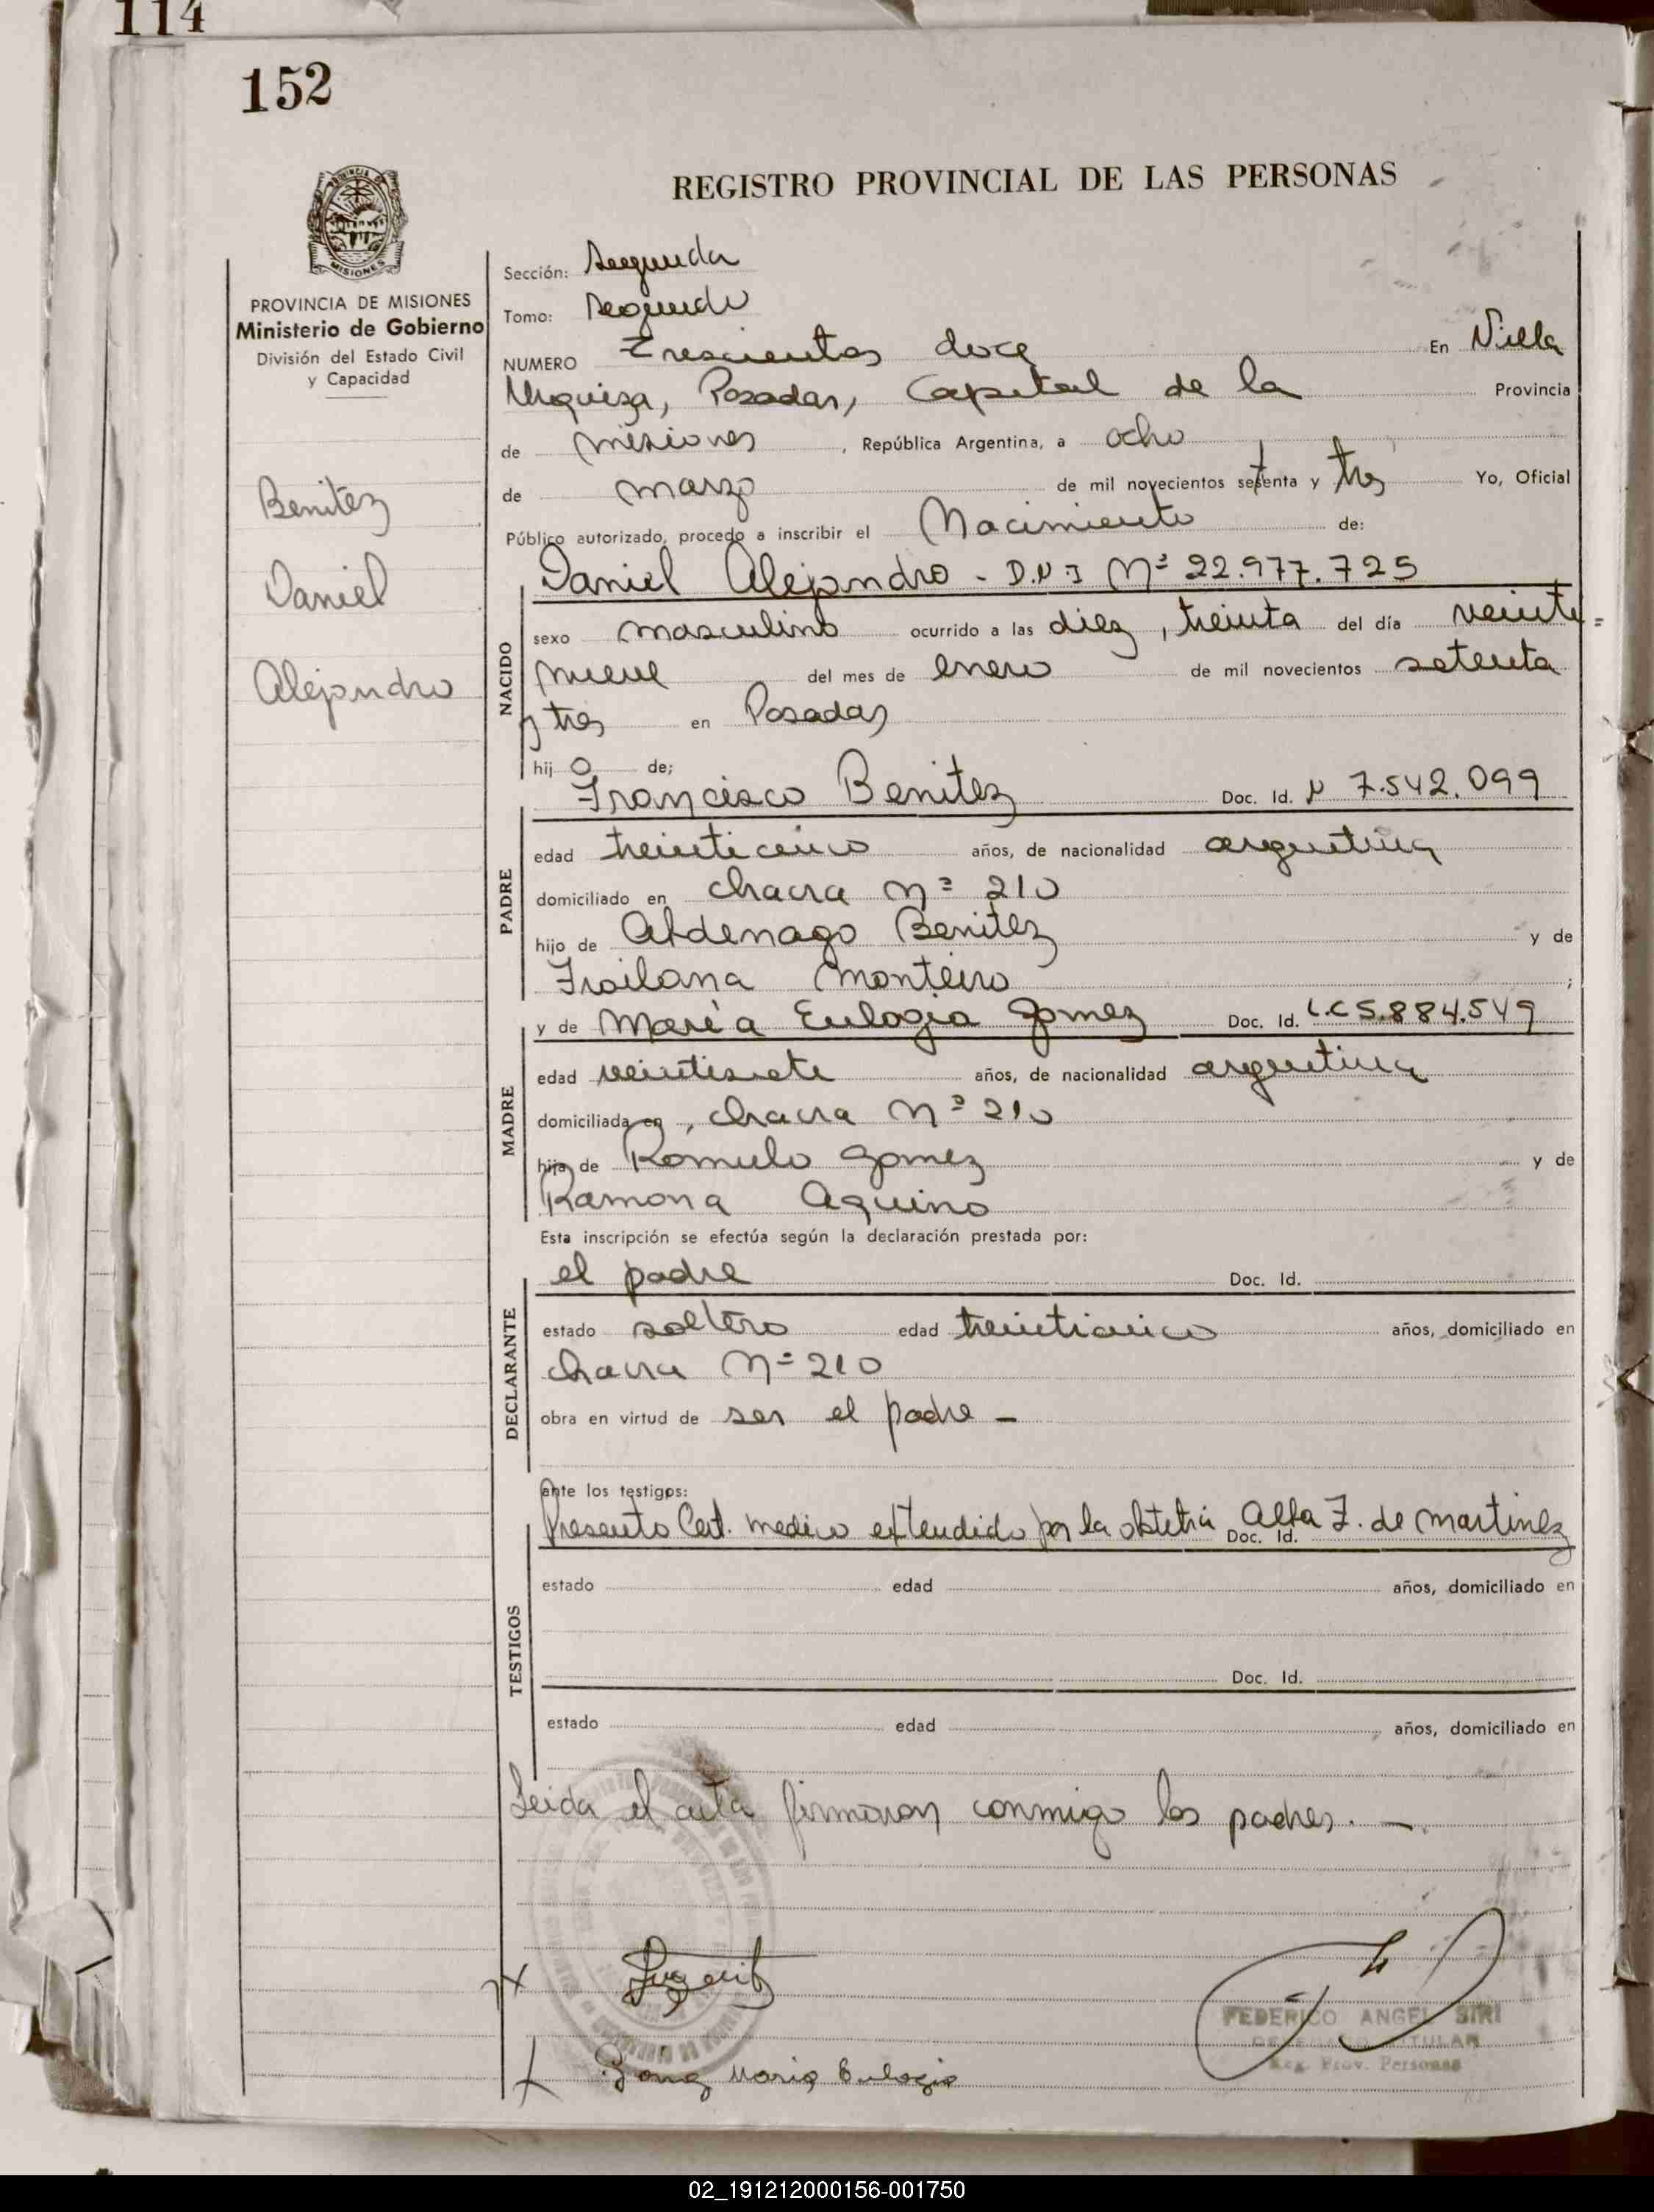 114
152
REGISTRO PROVINCIAL DE LAS PERSONAS
PROVINCIA DE MISIONES
Ministerio de Gobierno
División del Estado Civil
y Capacidad
Benitez
Daniel
Alejandro
Sección: Segunda
Tomo: Segundo
NUMERO Trescientos doce En Villa
Urquiza, Posadas, Capital de la Provincia
de Misiones, República Argentina, a ocho
de marzo de mil novecientos setenta y tres Yo, Oficial
Público autorizado, procedo a inscribir el Nacimiento de:
Daniel Alejandro - D.N.I Nº 22.977.725
NACIDO
sexo masculino ocurrido a las diez, treinta del día veinte=
nueve del mes de enero de mil novecientos setenta
y tres en Posadas
hijo de;
Francisco Benitez Doc. Id. N 7.542.099
PADRE
edad treinticinco años, de nacionalidad argentina
domiciliado en chacra Nº 210
hijo de Abdenago Benitez y de
Froilana Monteiro;
y de María Eulogia Gomez Doc. Id. L.C 5.884.549
MADRE
edad veintisiete años, de nacionalidad argentina
domiciliada en, chacra Nº 210
hija de Romulo Gomez y de
Ramona Aquino
Esta inscripción se efectúa según la declaración prestada por:
el padre Doc. Id.
DECLARANTE
estado soltero edad treinticinco años, domiciliado en
chacra Nº 210
obra en virtud de ser el padre -
ante los testigos:
Presento Cert. medico extendido por la obstetra Alba F. de Martinez
Doc. Id.
TESTIGOS
estado edad años, domiciliado en
Doc. Id.
estado edad años, domiciliado en
Leida el acta firmaron conmigo los padres. -
FEDERICO ANGEL SIRI
DELEGADO TITULAR
Reg. Prov. Personas
Maria Eulogia
02_191212000156-001750